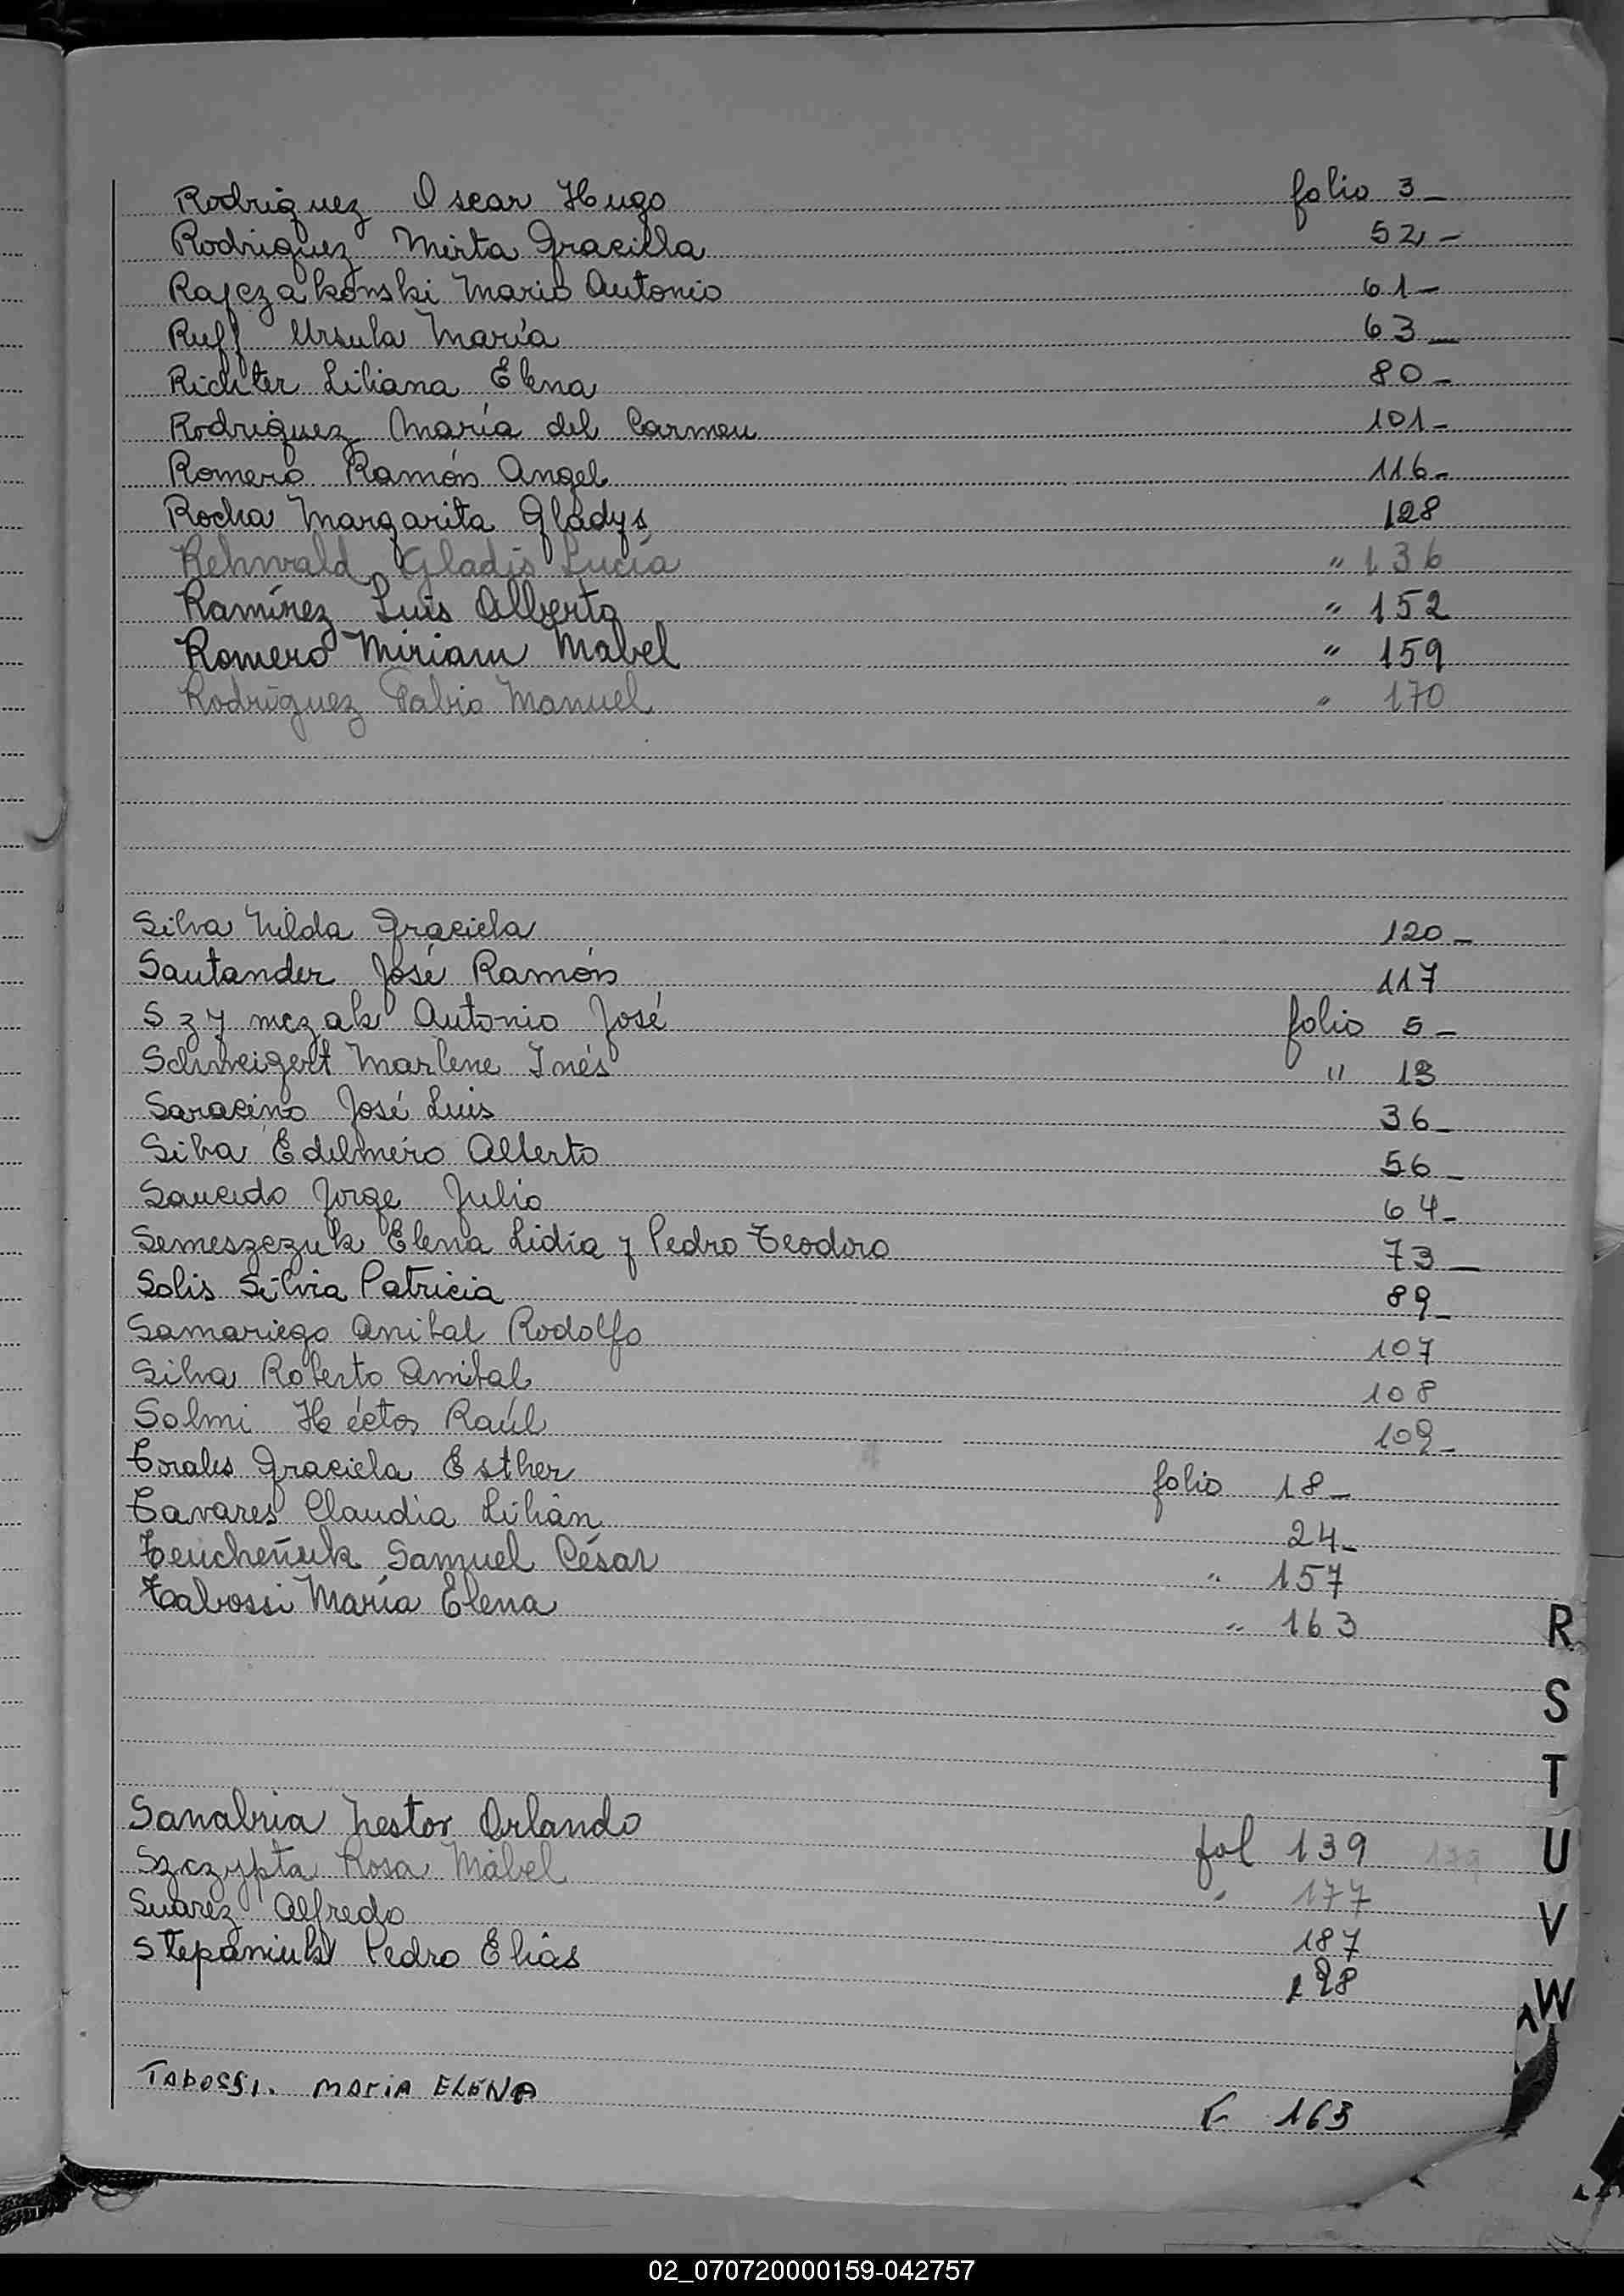 Rodriguez Oscar Hugo folio 3_
Rodriguez Mirta Graciela 52 -
Rajczakonski Mario Antonio 61 -
Ruff Ursula María 63_
Richter Liliana Elena 80_
Rodriguez María del Carmen 101_
Romero Ramón Angel 116_
Rocha Margarita Gladys 128
Rehwald Gladis Lucía " 136
Ramírez Luis Alberto " 152
Romero Miriam Mabel " 159
Rodríguez Fabio Manuel " 170
Silva Nilda Graciela 120_
Santander José Ramón 117
Szymczak Antonio José folio 5_
Schweigert Marlene Inés " 13
Saracino José Luis 36_
Silva Edelmiro Alberto 56_
Saucedo Jorge Julio 64_
Semeszczuk Elena Lidia y Pedro Teodoro 73_
Solis Silvia Patricia 89_
Samariego Anibal Rodolfo 107
Silva Roberto Anibal 108
Solmi Héctor Raúl 109_
Torales Graciela Esther folio 18_
Tavares Claudia Lilián 24_
Teucheñuk Samuel César " 157
Tabossi María Elena " 163
R
S
T
Sanabria Nestor Orlando fol 139 139
U
Szczypta Rosa Mabel " 177
Suarez Alfredo 187
V
Stepaniuk Pedro Elías 128
W
TABOSSI. MARIA ELENA F 163
02_070720000159-042757